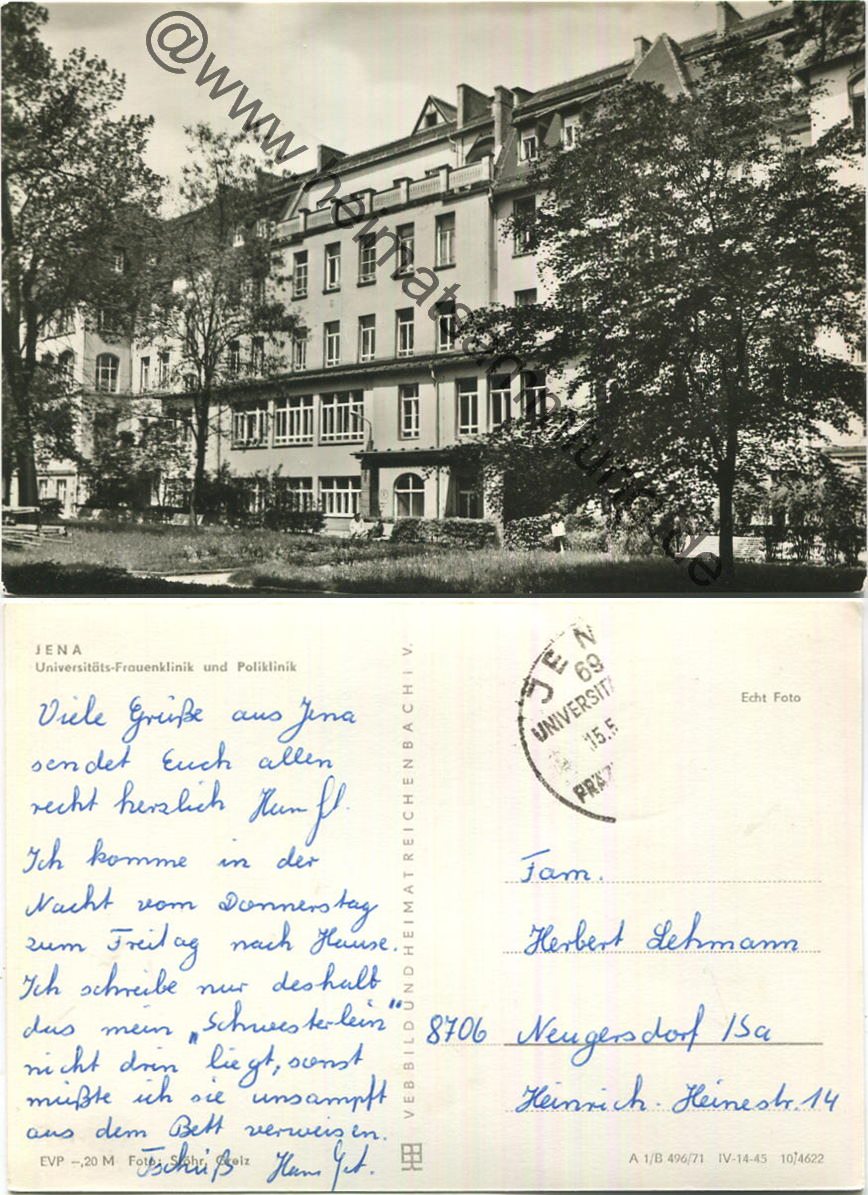 @www.heimatsammlung.de
JENA
Universitäts-Frauenklinik und Poliklinik
Viele Grüße aus Jena
sendet Euch allen
recht herzlich
Ich komme in der
Nacht vom Donnerstag
zum Freitag nach Hause.
Ich schreibe nur deshalb
das mein „Schwesterlein"
nicht drin liegt, sonst
müßte ich sie unsampft
aus dem Bett verweisen.
Tschüß
EVP –,20 M Foto: Stöhr, Greiz
VEB BILD UND HEIMAT REICHENBACH i. V.
JEN
69
UNIVERSIT
15.5
Echt Foto
Fam.
Herbert Lehmann
8706 Neugersdorf /Sa
Heinrich-Heinestr. 14
A 1/B 496/71 IV-14-45 10/4622